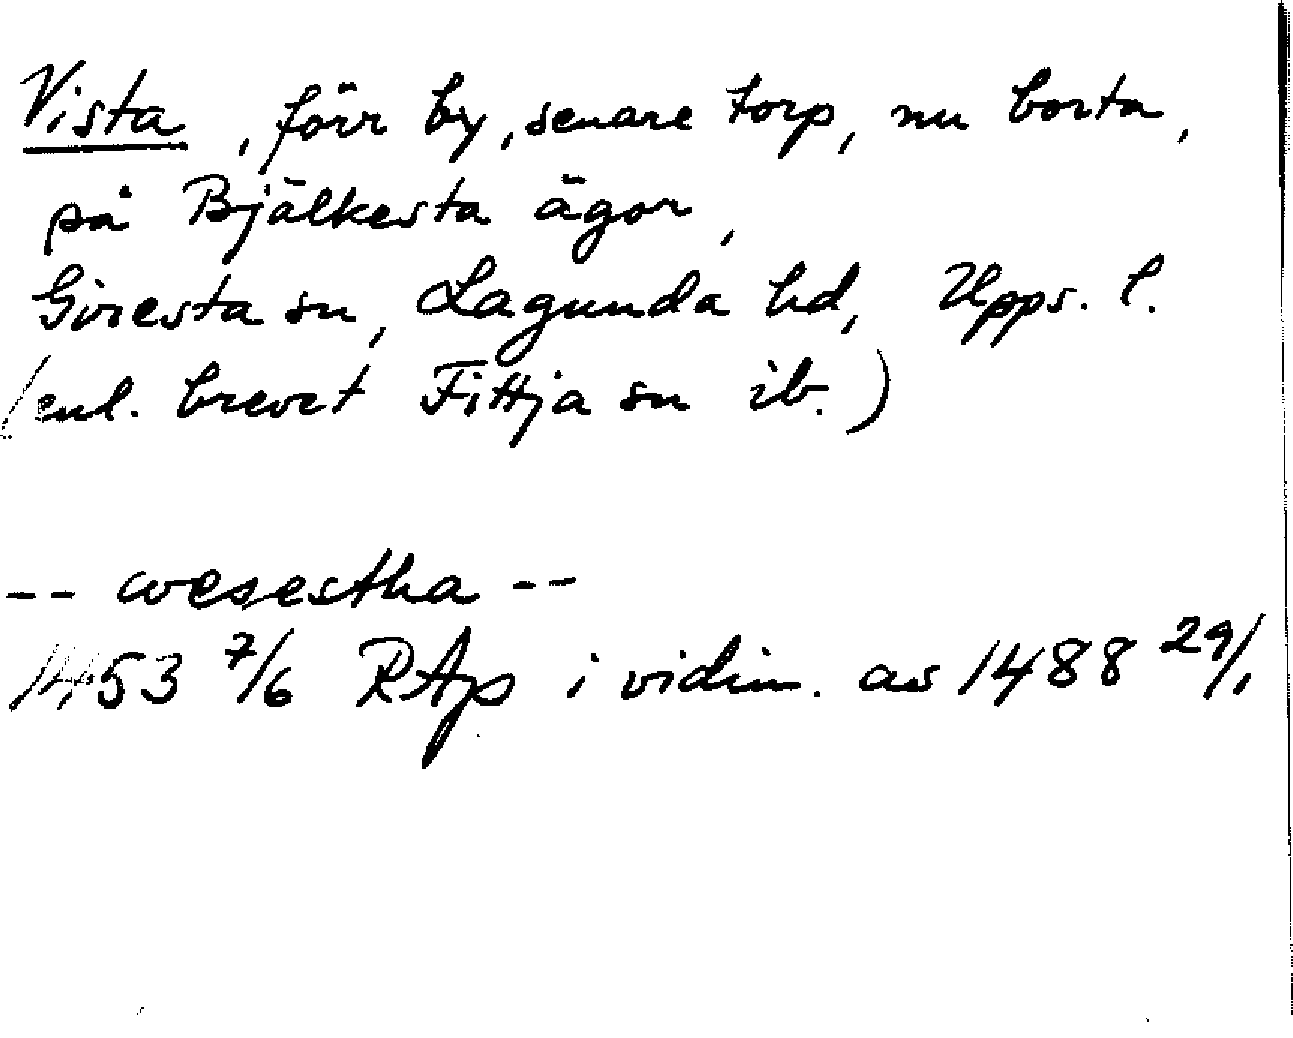 Vista, förr by, senare torp, nu borta,
på Bjälkesta ägor,
Giresta sn, Lagunda hd, Upps. l.
(enl. brevet Fittja sn ib.)
-- wesestha --
1453 7/6 RAp i vidim. av 1488 29/1